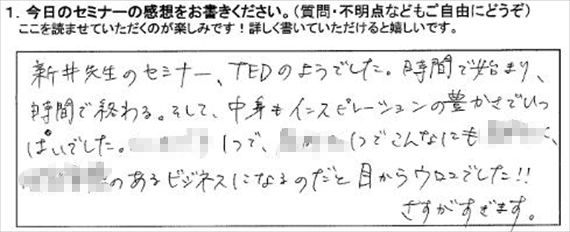 1. 今日のセミナーの感想をお書きください。(質問・不明点などもご自由にどうぞ)
ここを読ませていただくのが楽しみです!詳しく書いていただけると嬉しいです。
新井先生のセミナー、TEDのようでした。時間で始まり、
時間で終わる。そして、中身もインスピレーションの豊かさでいっ
ぱいでした。 1つで、 1つでこんなにも に、
のあるビジネスになるのだと目からウロコでした!!
さすがすぎます。